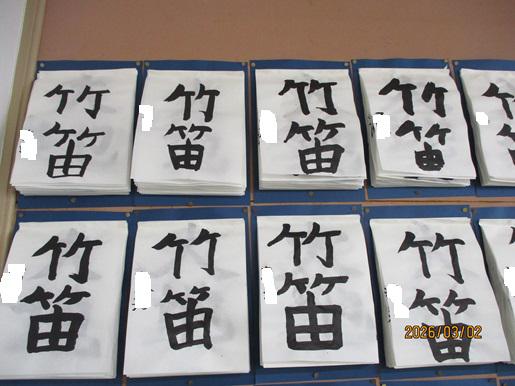 竹笛
竹笛
竹笛
竹笛
竹笛
竹笛
竹笛
竹笛
2026/03/02